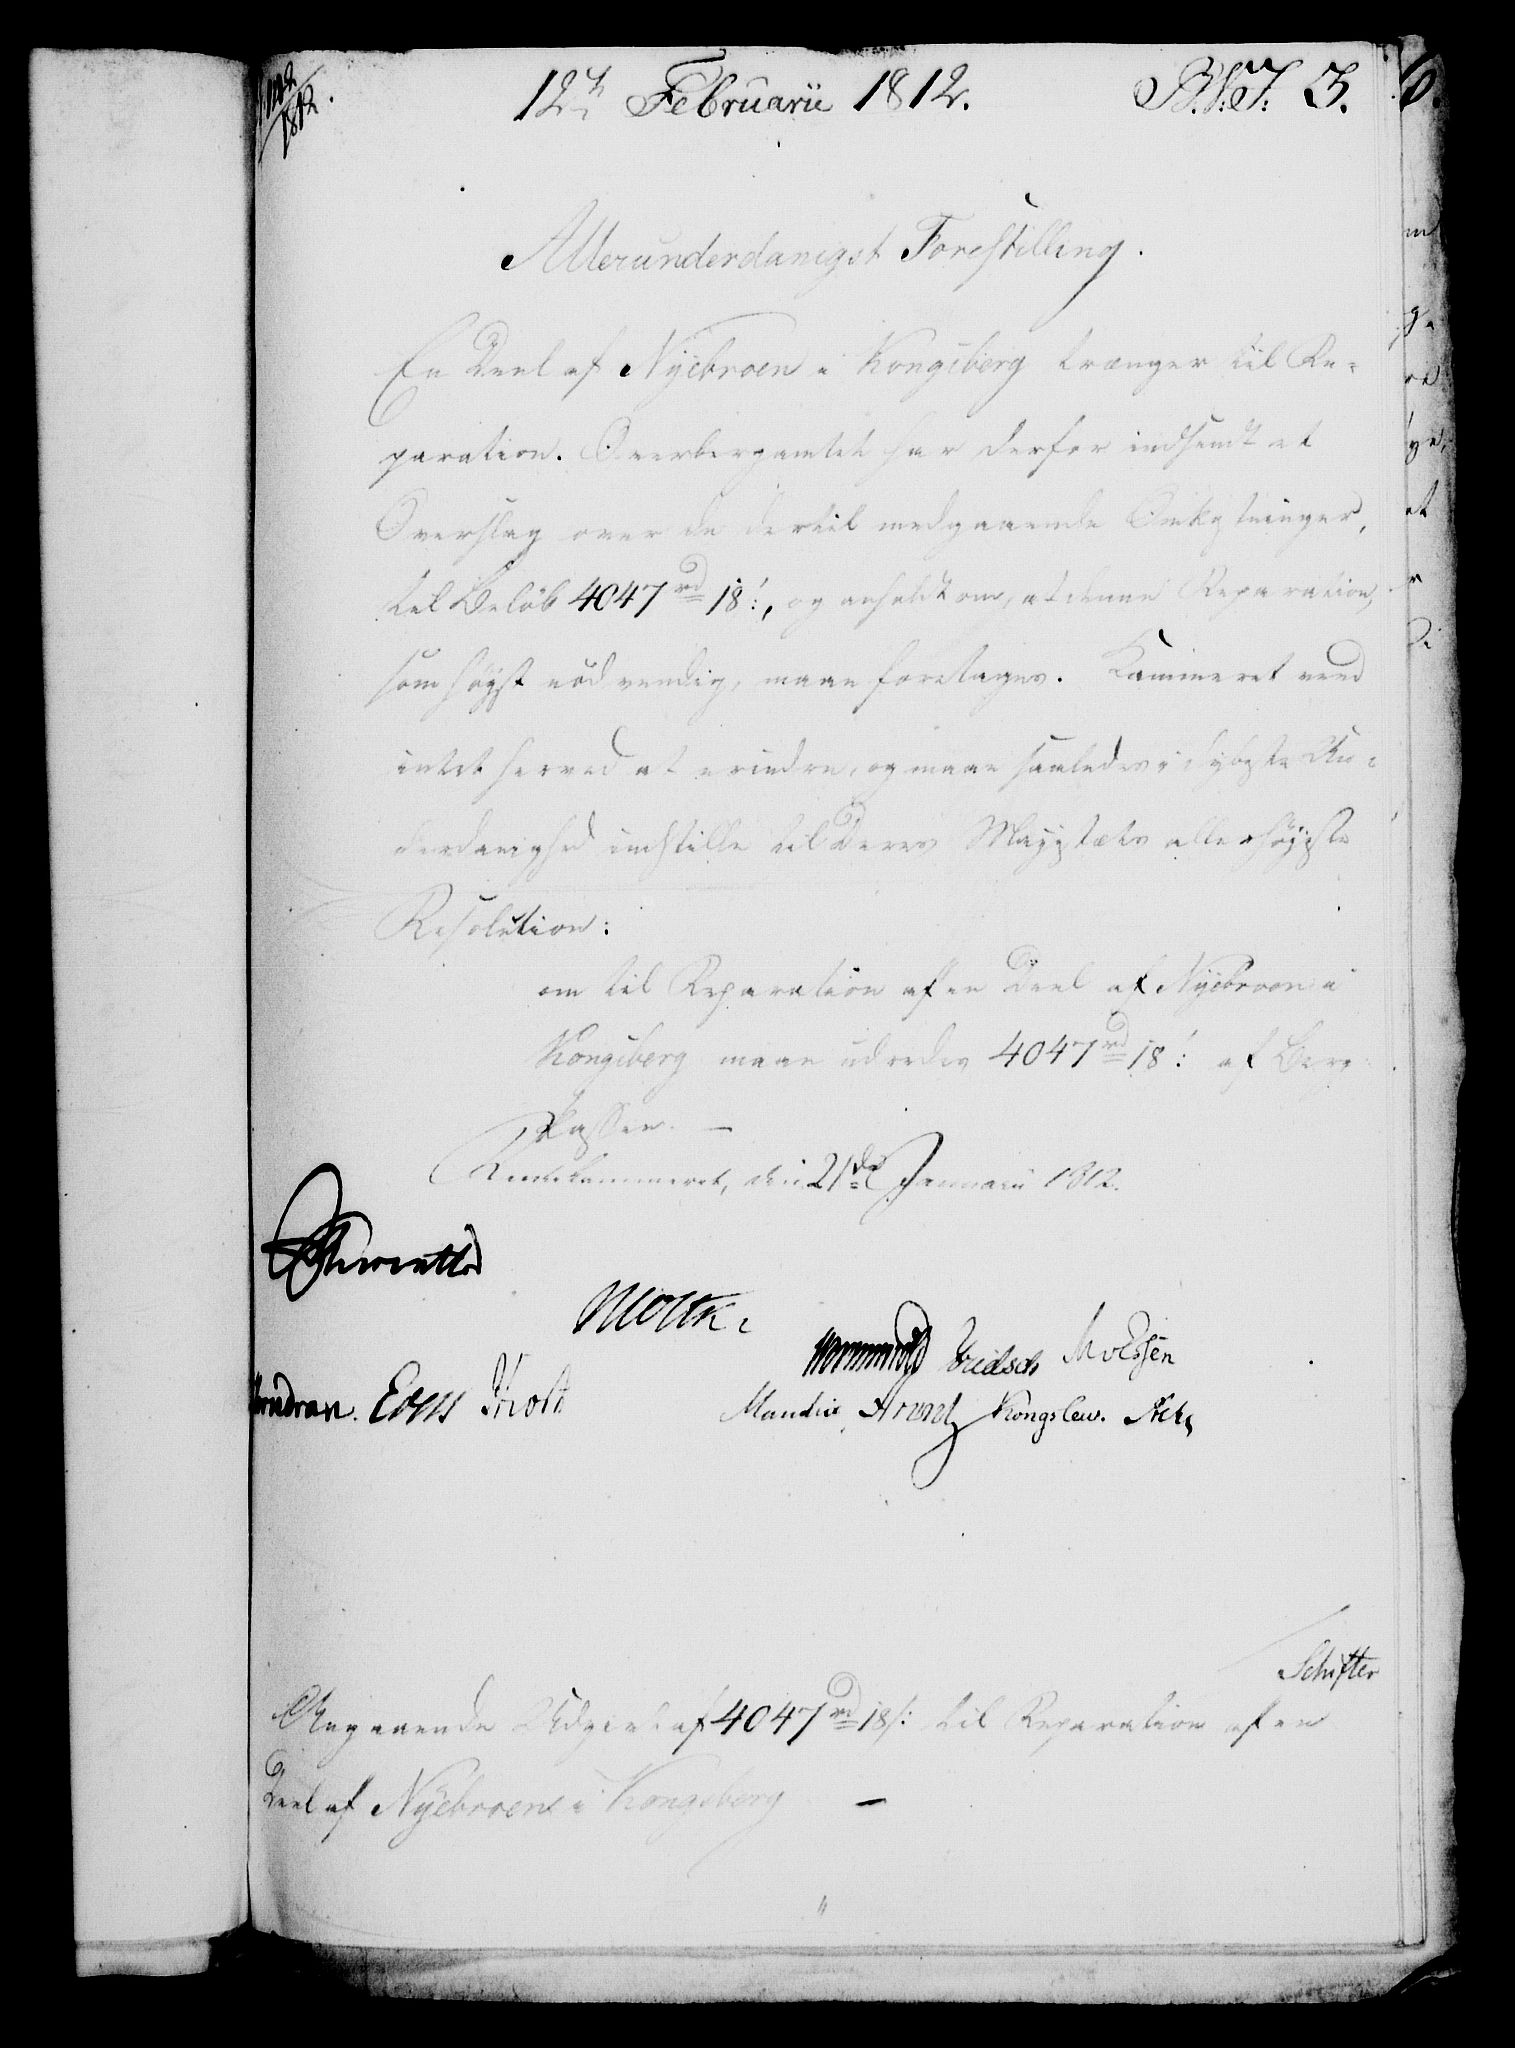 12te Februarii 1812. B.V.T. 3.
Allerunderdanigst Forestilling.
En Deel af Nÿebroen i Kongsberg trænger til Re-
paration. Overbergamtet har derfor indsendt et
Overslag over de dertil medgaaende Omkostninger,
til Beløb 4047 rd 18 s:, og anholdt om, at denne Reparation,
som høyst nødvendig, maae foretages. Kammeret veed
intet herved at erindre, og maae saaledes i dybeste Un-
derdanighed indstille til Deres Majestæts allerhøyeste
Resolution:
om til Reparation af en Deel af Nÿebroen i
Kongsberg maae udredes 4047 rd 18 s: af Berg-
kassen. —
Rentekammeret, den 21de Januarii 1812.
Moltke
Wormskiold Fridsch Moessen
Knoth
Manthei Arentz Kongslew.
Schifter
Angaaende Udgivt af 4047 rd 18 s: til Reparation af en
Deel af Nÿebroen i Kongsberg —